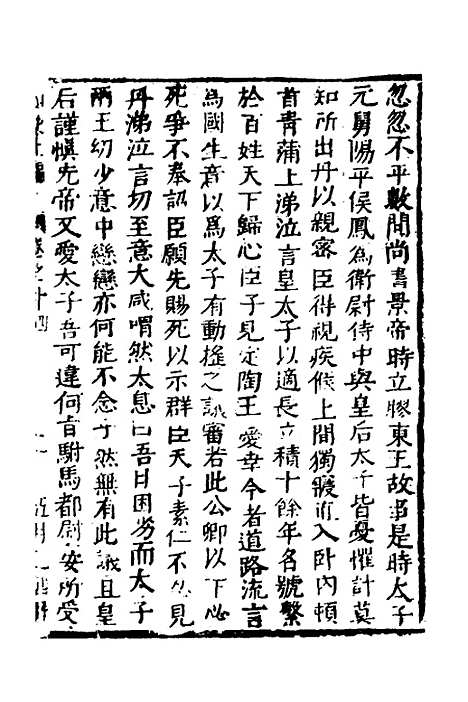 忽忽不平數問尚書景帝時立膠東王故事是時太子
元舅陽平侯鳳為衛尉侍中與皇后太子皆憂懼計莫
知所出丹以親密臣得視疾候上間獨寢直入卧内頓
首青蒲上涕泣言皇太子以適長立積十餘年名號繫
於百姓天下歸心臣子見定陶王愛幸今者道路流言
為國生意以爲太子有動搖之議審若此公卿以下必
死爭不奉詔臣願先賜死以示群臣天子素仁不忍見
丹涕泣言切至意大感喟然太息曰吾日困劣而太子
兩王幼少意中戀戀亦何能不念乎然無有此議且皇
后謹慎先帝又愛太子吾可違何言駙馬都尉安所受
卷之十四